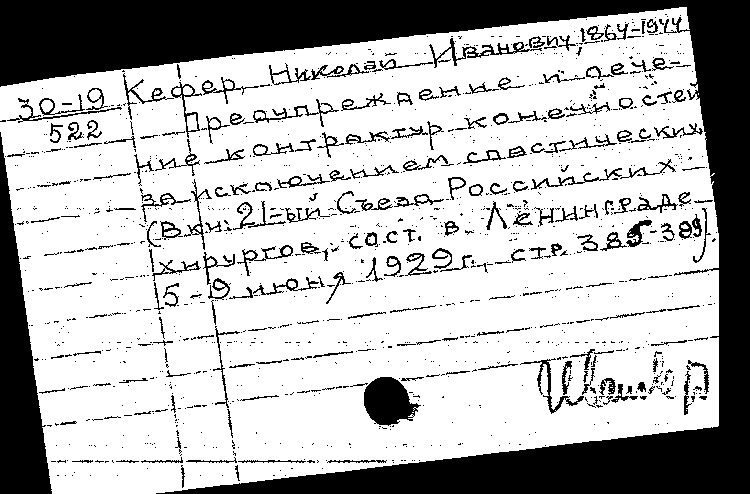 30-19 Кефер, Николай Иванович, 1864-1944
522 Предупреждение и лече-
ние контрактур конечностей
за исключением спастических.
(В кн: 21-ый Съезд Российских
хирургов, сост. в Ленинграде
5-9 июня 1929 г., стр. 385-389).